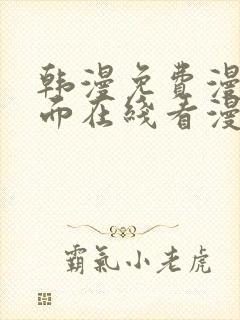 韩漫免費漫
而在綫看漫
霸氣小老虎